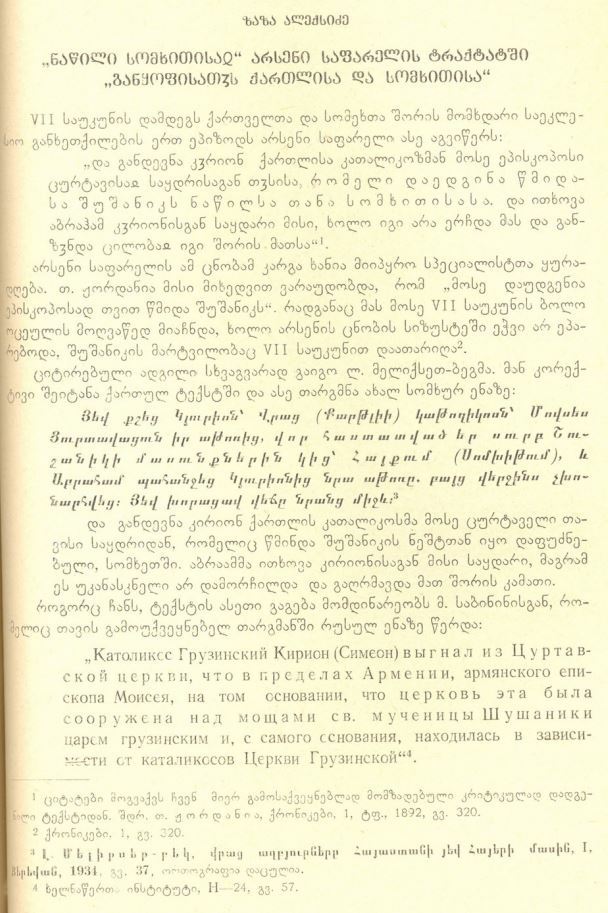 ზაზა ალექსიძე
„ნაწილი სომხითისაჲ“ არსენი საფარელის ტრაქტატში
„განყოფისათჳს ქართლისა და სომხითისა“
VII საუკუნის დამდეგს ქართველთა და სომეხთა შორის მომხდარი საეკლე-
სიო განხეთქილების ერთ ეპიზოდს არსენი საფარელი ასე აგვიწერს:
„და განდევნა კჳრიონ ქართლისა კათალიკოზმან მოსე ეპისკოპოსი
ცურტავისაჲ საყდრისაგან თჳსისა, რომელი დაედგინა წმიდა-
სა შუშანიკს ნაწილსა თანა სომხითისასა. და ითხოვა
აბრაჰამ კჳრიონისგან საყდარი მისი, ხოლო იგი არა ერჩდა მას და გან-
ზჳნდა ცილობაჲ იგი შორის მათსა“¹.
არსენი საფარელის ამ ცნობამ კარგა ხანია მიიპყრო სპეციალისტთა ყურა-
დღება. თ. ჟორდანია მისი მიხედვით ვარაუდობდა, რომ „მოსე დაუდგენია
ეპისკოპოსად თვით წმიდა შუშანიკს“. რადგანაც მას მოსე VII საუკუნის ბოლო
ოცეულის მოღვაწედ მიაჩნდა, ხოლო არსენის ცნობის სიზუსტეში ეჭვი არ ეპა-
რებოდა, შუშანიკის მარტვილობაც VII საუკუნით დაათარიღა².
ციტირებული ადგილი სხვაგვარად გაიგო ლ. მელიქსეთ-ბეგმა. მან კორექ-
ტივი შეიტანა ქართულ ტექსტში და ასე თარგმნა ახალ სომხურ ენაზე:
Յեվ քշեց Կյուրիոն՝ Վրաց (Քարթլիի) կաթողիկոսն՝ Մովսես
Ցուրտավացուն իր աթոռից, վոր հաստատված եր սուրբ Շու-
շանիկի մասունքներին կից՝ Հայքում (Սոմխիթում), և
Աբրահամ պահանջեց Կյուրիոնից նրա աթոռը. բայց վերջինս չխո-
նարհվեց: Յեվ խորացավ վեճը նրանց միջև:³
და განდევნა კირიონ ქართლის კათალიკოსმა მოსე ცურტაველი თა-
ვისი საყდრიდან, რომელიც წმინდა შუშანიკის ნეშტთან იყო დაფუძნე-
ბული, სომხეთში. აბრაამმა ითხოვა კირიონისაგან მისი საყდარი, მაგრამ
ეს უკანასკნელი არ დამორჩილდა და გაღრმავდა მათ შორის კამათი.
როგორც ჩანს, ტექსტის ასეთი გაგება მომდინარეობს მ. საბინინისგან, რო-
მელიც თავის გამოუქვეყნებელ თარგმანში რუსულ ენაზე წერდა:
„Католикос Грузинский Кирион (Симеон) выгнал из Цуртав-
ской церкви, что в пределах Армении, армянского епи-
скопа Моисея, на том основании, что церковь эта была
сооружена над мощами св. мученицы Шушаники
царем грузинским и, с самого основания, находилась в зависи-
мости от каталикосов Церкви Грузинской“⁴.
¹ ციტატები მოგვაქვს ჩვენ მიერ გამოსაქვეყნებლად მომზადებული კრიტიკულად დადგე-
ნილი ტექსტიდან. შდრ. თ. ჟორდანია, ქრონიკები, 1, ტფ., 1892, გვ. 320.
² ქრონიკები, 1, გვ. 320.
³ Լ. Մելիքսեթ-բեկ, Վրաց աղբյուրները Հայաստանի յեվ Հայերի մասին, I,
Յերեվան, 1934, გვ. 37, ორთოგრაფია დაცულია.
⁴ ხელნაწერთა ინსტიტუტი, H—24, გვ. 57.